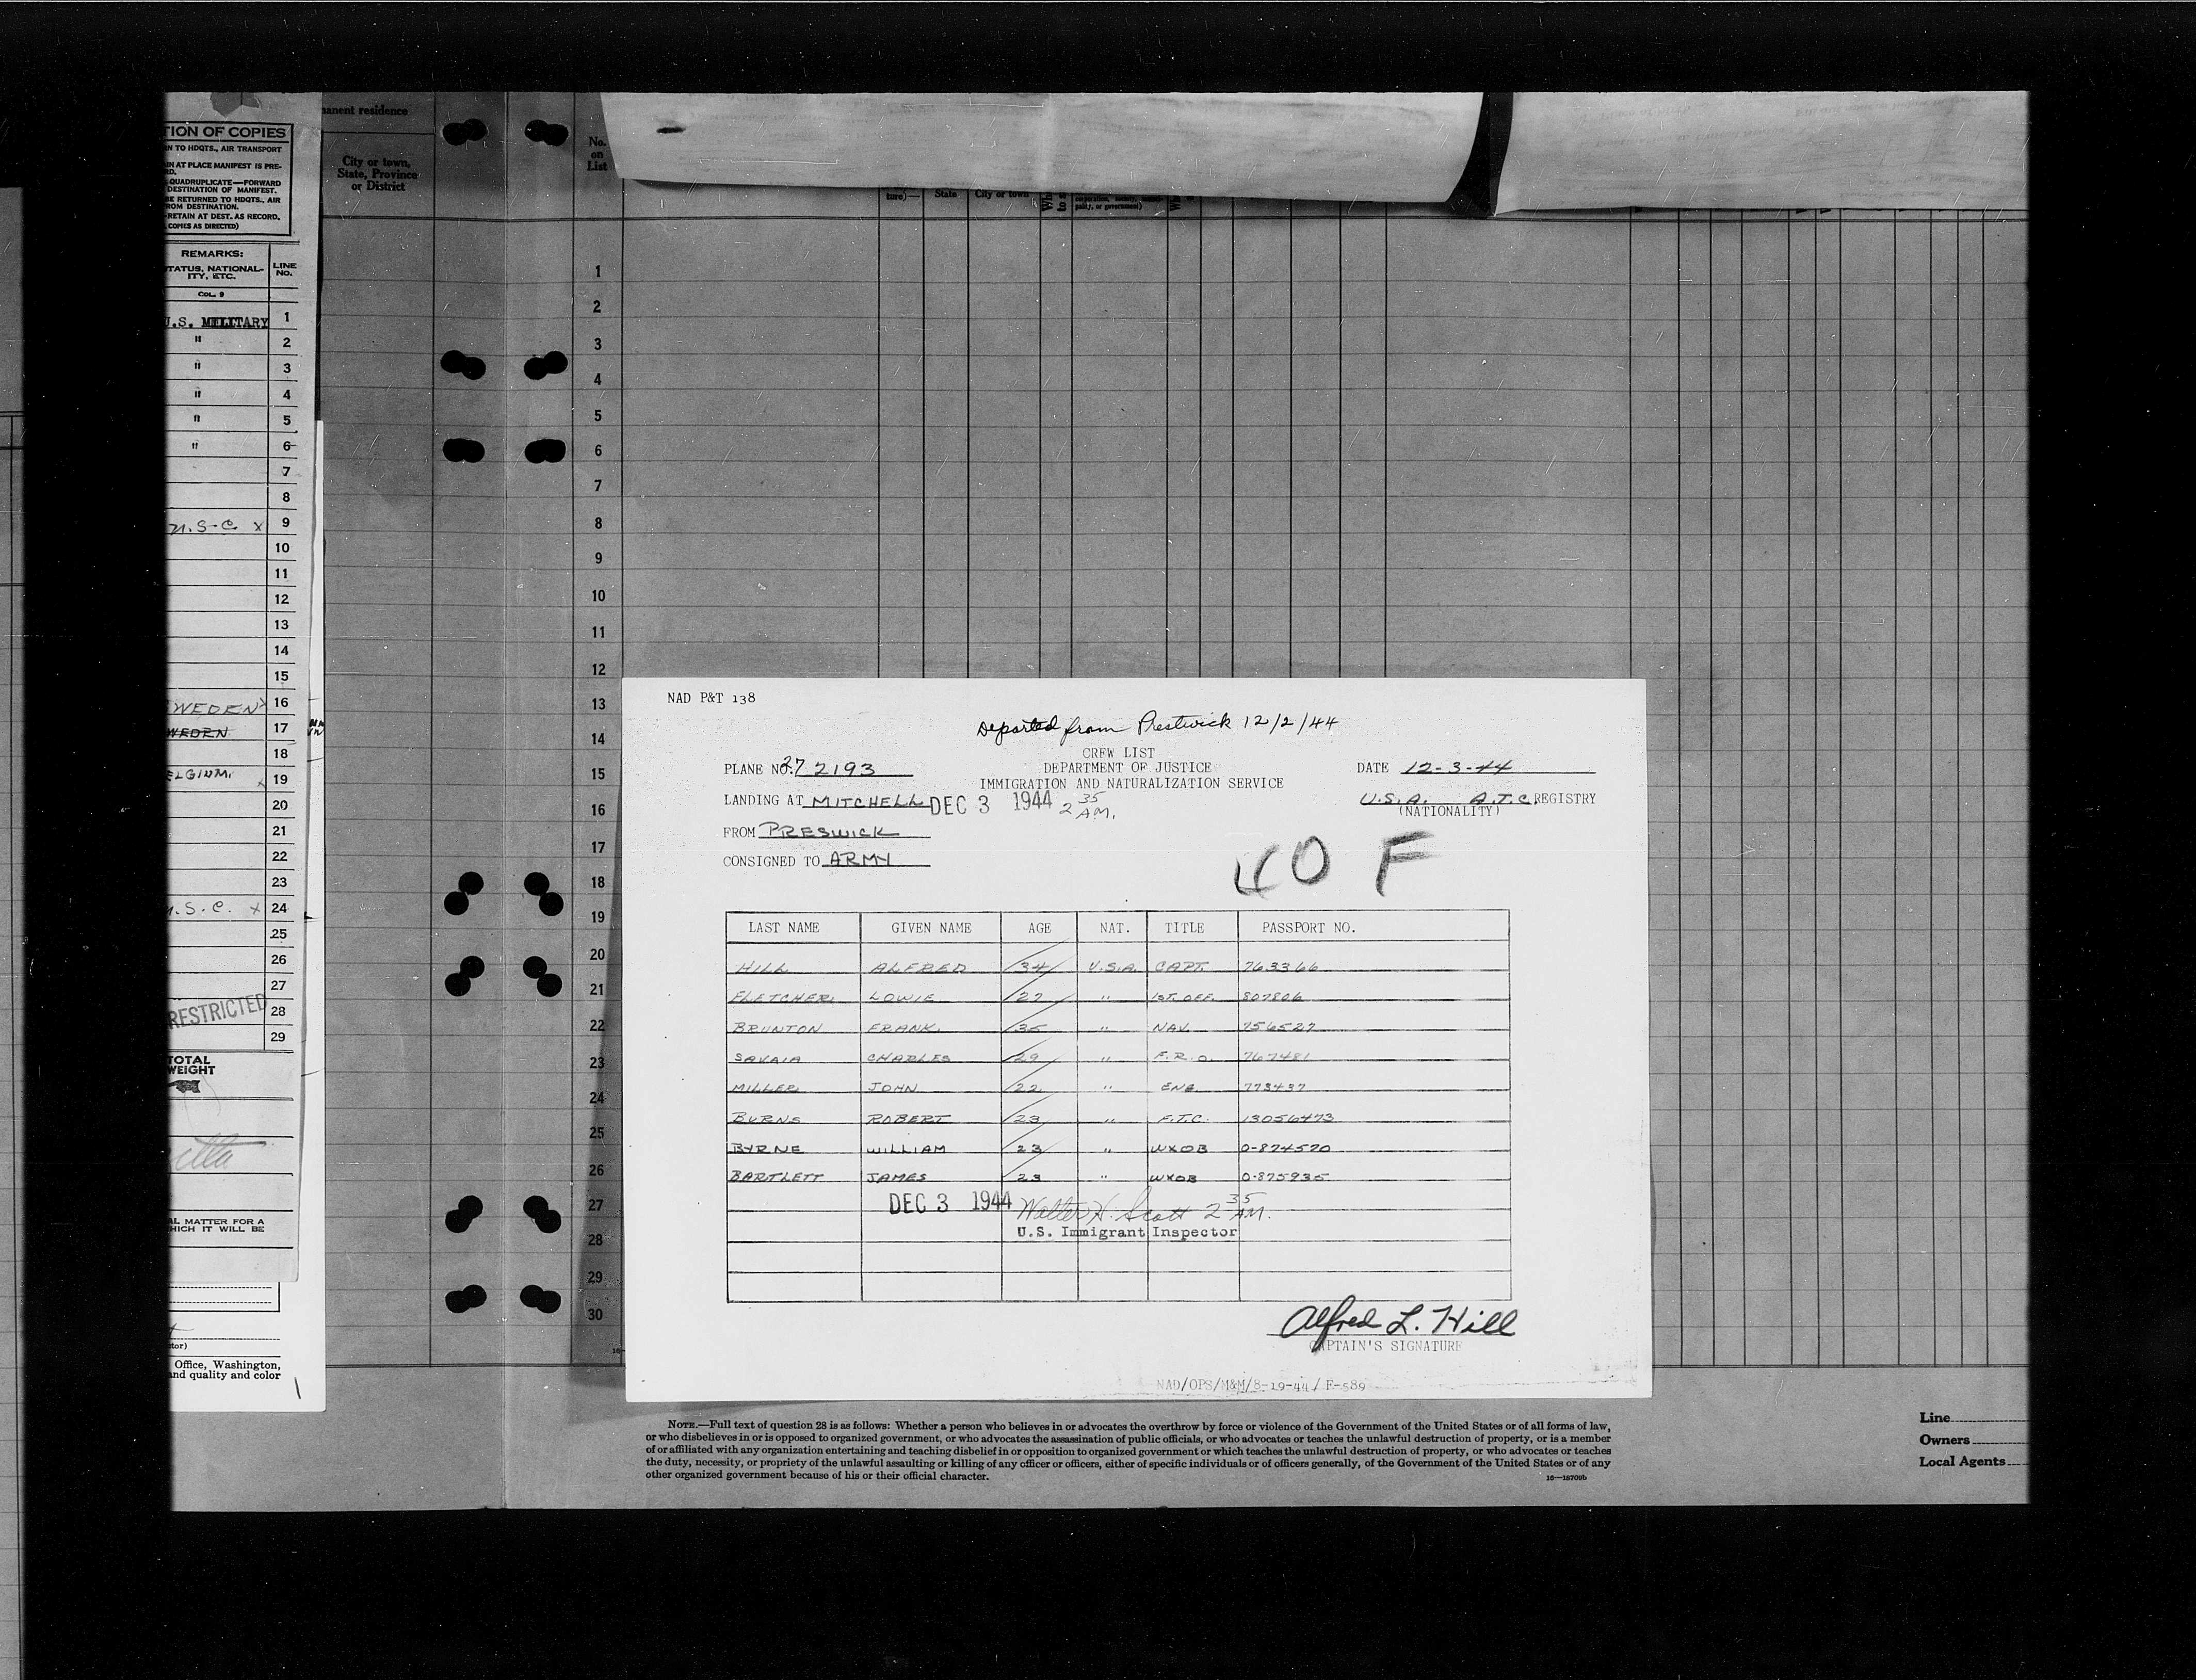 TION OF COPIES
N TO HDQTS., AIR TRANSPORT
IN AT PLACE MANIFEST IS PRE-
RD.
QUADRUPLICATE—FORWARD
DESTINATION OF MANIFEST.
BE RETURNED TO HDQTS., AIR
ROM DESTINATION.
RETAIN AT DEST. AS RECORD.
COPIES AS DIRECTED)
REMARKS:
TATUS, NATIONAL-
ITY, ETC.
LINE
NO.
COL. 9
U.S. MILITARY 1
" 2
" 3
" 4
" 5
" 6
7
8
N.S.C. x 9
10
11
12
13
14
15
WEDEN x 16
WEDEN 17
18
ELGIUM. x 19
20
21
22
23
.S.C. x 24
25
26
27
RESTRICTED 28
29
TOTAL
WEIGHT
AL MATTER FOR A
HICH IT WILL BE
tor)
Office, Washington,
and quality and color
manent residence
City or town,
State, Province
or District
No.
on
List
ture)—
State
City or town
corporation, society, munici-
pality, or government)
1
2
3
4
5
6
7
8
9
10
11
12
13
14
15
16
17
18
19
20
21
22
23
24
25
26
27
28
29
30
NAD P&T 138
Departed from Prestwick 12/2/44
CREW LIST
PLANE NO. 27 2193 DEPARTMENT OF JUSTICE DATE 12-3-44
IMMIGRATION AND NATURALIZATION SERVICE
LANDING AT MITCHELL DEC 3 1944 2 35 AM. U.S.A. A.T.C. REGISTRY
(NATIONALITY)
FROM PRESWICK
CONSIGNED TO ARMY
40 F
LAST NAME GIVEN NAME AGE NAT. TITLE PASSPORT NO.
HILL ALFRED 34 U.S.A. CAPT. 763366
FLETCHER LOWIE 27 " 1ST. OFF. 807806
BRUNTON FRANK 35 " NAV. 756527
SAVAIA CHARLES 29 " F.R.O. 767481
MILLER JOHN 22 " ENG 773437
BURNS ROBERT 23 " F.T.C. 13056473
BYRNE WILLIAM 23 " WXOB 0-874570
BARTLETT JAMES 23 " WXOB 0-875935
DEC 3 1944 Walter H. Scott 2 35 AM.
U.S. Immigrant Inspector
Alfred L. Hill
CAPTAIN'S SIGNATURE
NAD/OPS/M&M/8-19-44/F-589
NOTE.—Full text of question 28 is as follows: Whether a person who believes in or advocates the overthrow by force or violence of the Government of the United States or of all forms of law,
or who disbelieves in or is opposed to organized government, or who advocates the assassination of public officials, or who advocates or teaches the unlawful destruction of property, or is a member
of or affiliated with any organization entertaining and teaching disbelief in or opposition to organized government or which teaches the unlawful destruction of property, or who advocates or teaches
the duty, necessity, or propriety of the unlawful assaulting or killing of any officer or officers, either of specific individuals or of officers generally, of the Government of the United States or of any
other organized government because of his or their official character.
16—18709b
Line
Owners
Local Agents